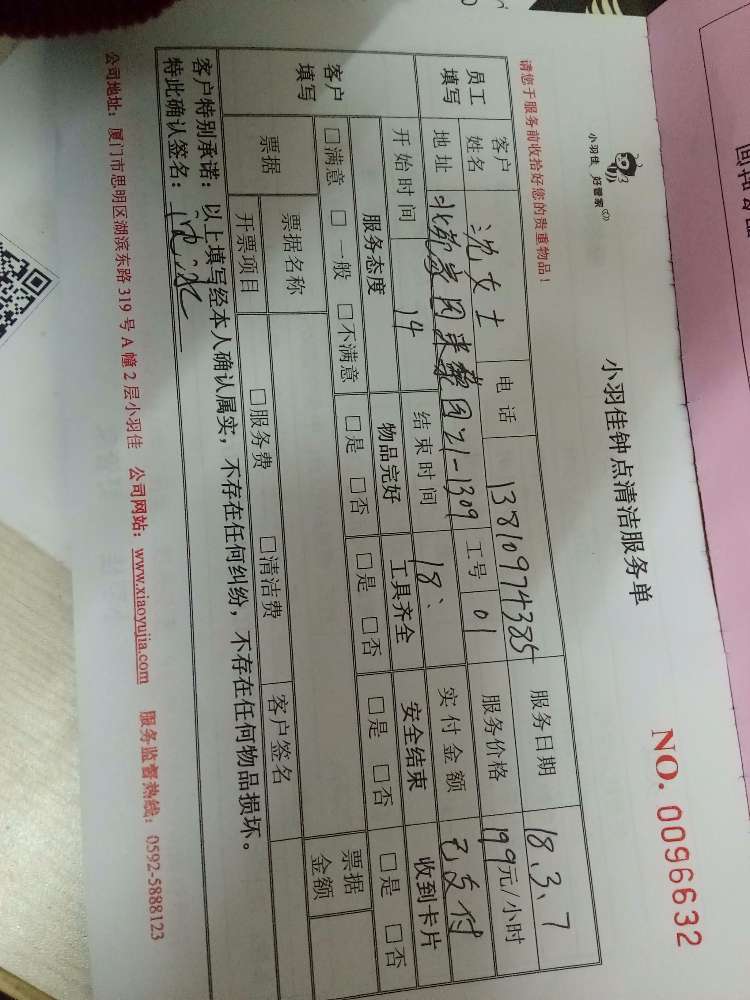 小羽佳 好管家
小羽佳钟点清洁服务单
NO. 0096632
请您于服务前收拾好您的贵重物品！
员工填写 客户姓名 沈女士 电话 13810974385 服务日期 18.3.7
地址 21-1309 工号 01 服务价格 199元/小时
开始时间 14 结束时间 18 实付金额 已支付
客户填写 服务态度 物品完好 工具齐全 安全结束 收到卡片
□满意 □一般 □不满意 □是 □否 □是 □否 □是 □否 □是 □否
票据 票据名称 客户签名 票据金额
开票项目 □服务费 □清洁费
客户特别承诺：以上填写经本人确认属实，不存在任何纠纷，不存在任何物品损坏。
特此确认签名：
公司地址：厦门市思明区湖滨东路319号A幢2层小羽佳 公司网站：www.xiaoyujia.com 服务监督热线：0592-5888123